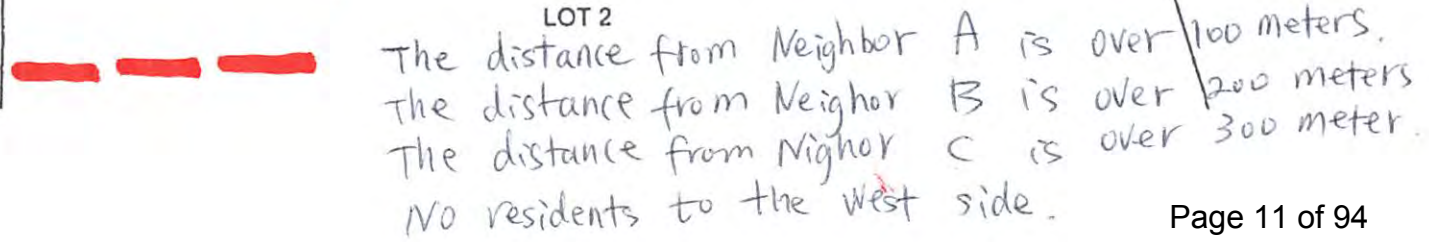 LOT 2
The distance from Neighbor A is over 100 meters.
The distance from Neighor B is over 200 meters
The distance from Nighor C is over 300 meter.
No residents to the west side.
Page 11 of 94